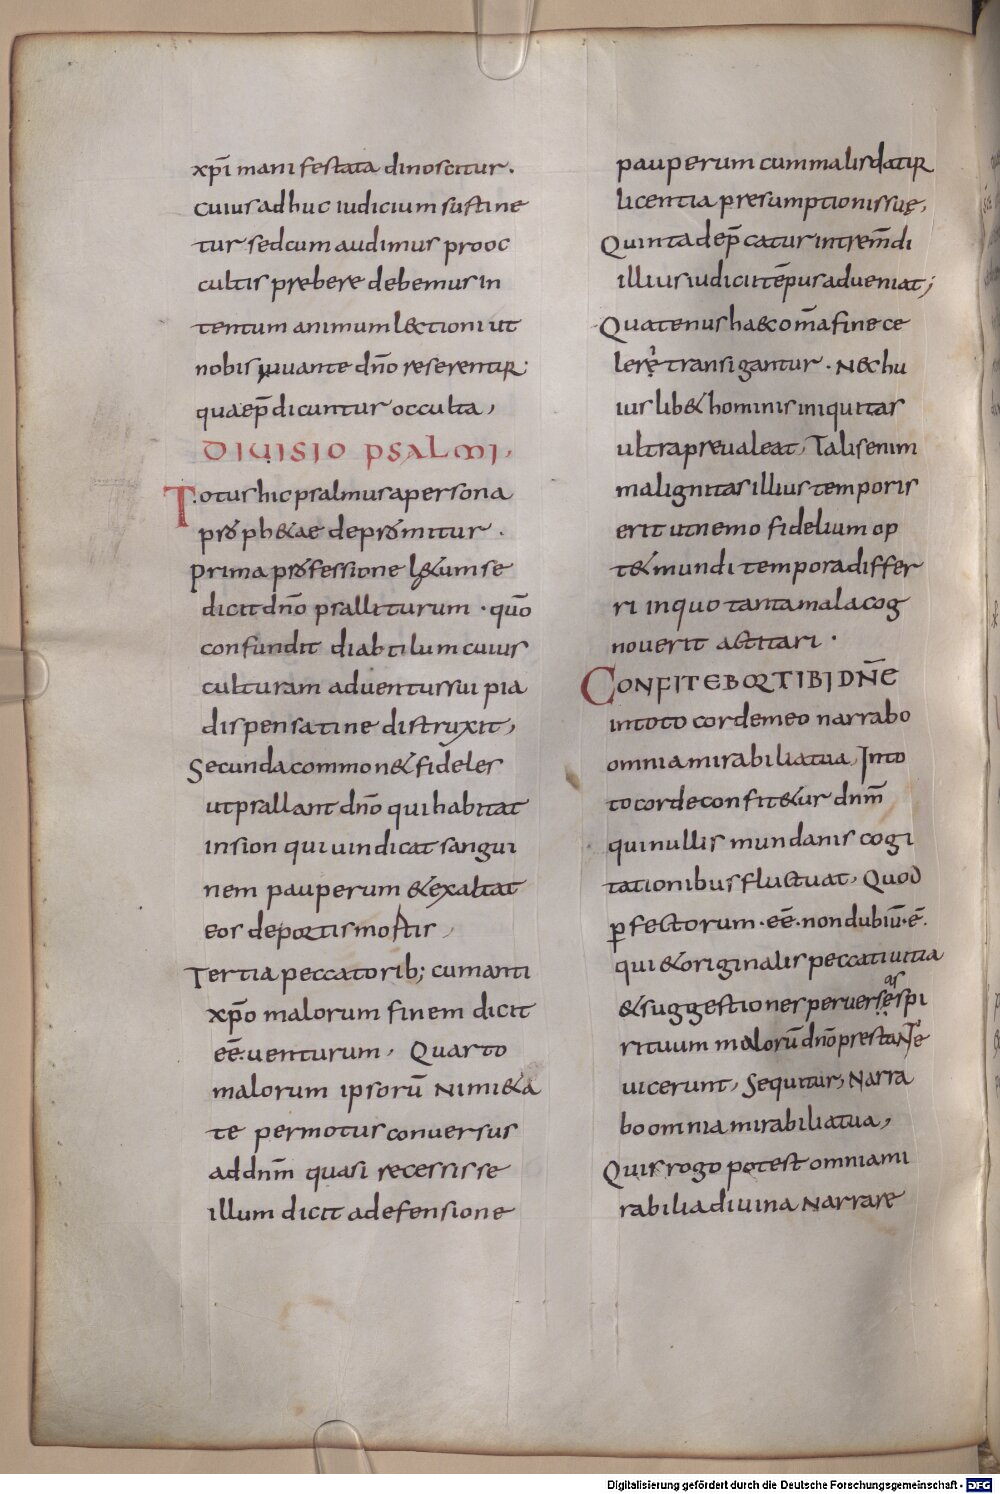 xp̄i manifestata dinoscitur.
cuius adhuc iudicium sustine
tur sed cum audimus pro oc
cultis prebere debemus in
tentum animum lectioni ut
nobis iuuante dn̄o reserentur
quae p̄dicuntur occulta,
DIUISIO PSALMI,
Totus hic psalmus a persona
prophetae depromitur.
Prima professione laetum se
dicit dn̄o psalliturum. quō
confundit diabtilum cuius
culturam aduentus sui pia
dispensatine distruxit,
Secunda commonet fideles
ut psallant dn̄o qui habitat
in sion qui uindicat sangui
nem pauperum & exaltat
eos de portis mortis,
Tertia peccatorib; cum anti
xp̄o malorum finem dicit
eē. uenturum, Quarto
malorum ipsorū nimieta
te permotus conuersus
ad dnm̄ quasi recessisse
illum dicit a defensione
pauperum cum malis datur
licentia presumptionis suę,
Quinta dep̄catur ut trem̄di
illius iudicii tēpus adueniat;
Quatenus haec om̄a fine ce
lerę transigantur. Nec hu
ius libet hominis iniquitas
ultra preualeat, Talis enim
malignitas illius temporis
erit ut nemo fidelium op
tet mundi tempora differ
ri in quo tanta mala cog
nouerit actitari.
CONFITEBOR TIBI DN̄E
in toto corde meo narrabo
omnia mirabilia tua, In to
to corde confitetur dnm̄
qui nullis mundanis cogi
tationibus fluctuat, Quod
ꝑfectorum. eē. non dubiū. ē.
qui & originalis peccati uitia
& suggestiones peruersęas spi
rituum malorū dn̄o prestante
uicerunt, Sequitur, Narra
bo omnia mirabilia tua,
Quis rogo potest omnia mi
rabilia diuina narrare
Digitalisierung gefördert durch die Deutsche Forschungsgemeinschaft - DFG